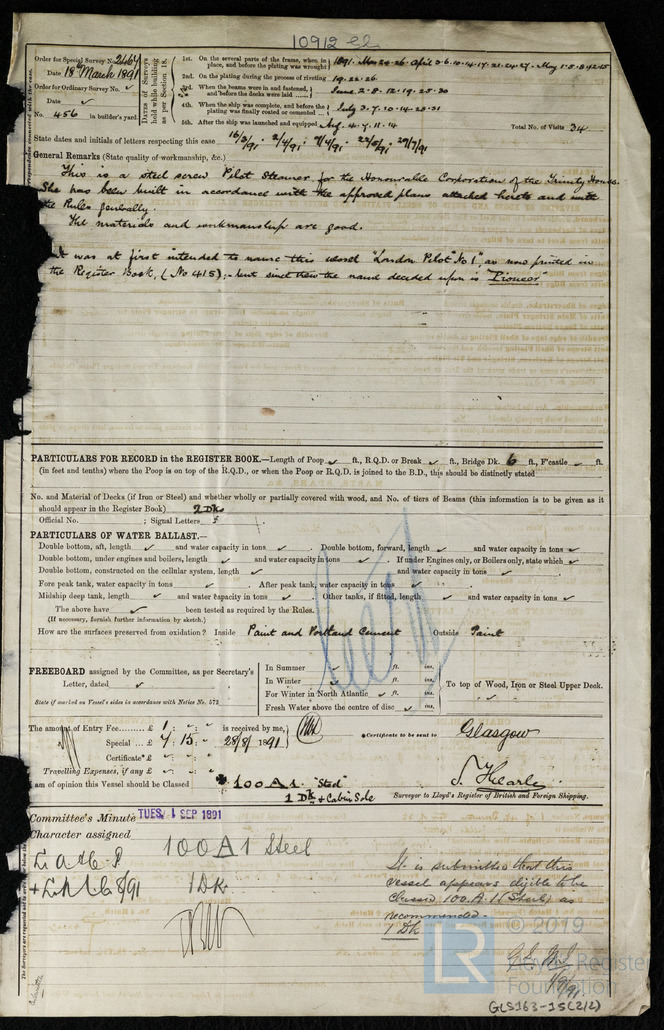 10912
Order for Special Survey No. 2467
Date 18th March 1891
Order for Ordinary Survey No.
Date
No. 456 in builder's yard.
Dates of Surveys held while building as per Section 18.
1st. On the several parts of the frame, when in place, and before the plating was wrought
2nd. On the plating during the process of riveting 19.22.26.
3rd. When the beams were in and fastened, and before the decks were laid June 2.8.12.19.25.30
4th. When the ship was complete, and before the plating was finally coated or cemented July 3.7.10.14.23.31
5th. After the ship was launched and equipped Aug. 4.7.11.14
Total No. of Visits 34
State dates and initials of letters respecting this case
General Remarks (State quality of workmanship, &c.)
This is a steel screw Pilot Steamer for the Honourable Corporation of the Trinity House.
She has been built in accordance with the approved plans attached hereto and with
the Rules generally.
The materials and workmanship are good.
It was at first intended to name this vessel "London Pilot No 1", as now printed in
the Register Book, (No 415);- but since then the name decided upon is "Pioneer"
PARTICULARS FOR RECORD in the REGISTER BOOK.—Length of Poop ft., R.Q.D. or Break ft., Bridge Dk. 6 ft., F'castle ft.
(in feet and tenths) where the Poop is on top of the R.Q.D., or when the Poop or R.Q.D. is joined to the B.D., this should be distinctly stated
No. and Material of Decks (if Iron or Steel) and whether wholly or partially covered with wood, and No. of tiers of Beams (this information is to be given as it
should appear in the Register Book) 2 Dks
Official No. ; Signal Letters
PARTICULARS OF WATER BALLAST.—
Double bottom, aft, length and water capacity in tons . Double bottom, forward, length and water capacity in tons
Double bottom, under engines and boilers, length and water capacity in tons . If under Engines only, or Boilers only, state which
Double bottom, constructed on the cellular system, length and water capacity in tons
Fore peak tank, water capacity in tons . After peak tank, water capacity in tons
Midship deep tank, length and water capacity in tons . Other tanks, if fitted, length and water capacity in tons
The above have been tested as required by the Rules.
(If necessary, furnish further information by sketch.)
How are the surfaces preserved from oxidation? Inside Paint and Portland Cement Outside Paint
FREEBOARD assigned by the Committee, as per Secretary's
Letter, dated
State if marked on Vessel's sides in accordance with Notice No. 572
In Summer ft. ins.
In Winter ft. ins.
For Winter in North Atlantic ft. ins.
Fresh Water above the centre of disc ins.
To top of Wood, Iron or Steel Upper Deck.
The amount of Entry Fee £ 1 : - : - is received by me,
Special £ 7 : 15 : - 28/8/1891
Certificate* £
Travelling Expenses, if any £
*Certificate to be sent to Glasgow
I am of opinion this Vessel should be Classed 100A1. "Steel"
1 Dk + Cabin Sole
Surveyor to Lloyd's Register of British and Foreign Shipping.
Committee's Minute TUES, 1 SEP 1891
Character assigned 100A1 Steel
1 Dk
It is submitted that this
vessel appears eligible to be
classed 100.A.1 (Steel) as
recommended.
1 Dk
1/9/91
LR © 2019
Lloyd's Register
Foundation
GLS163-15(2/2)